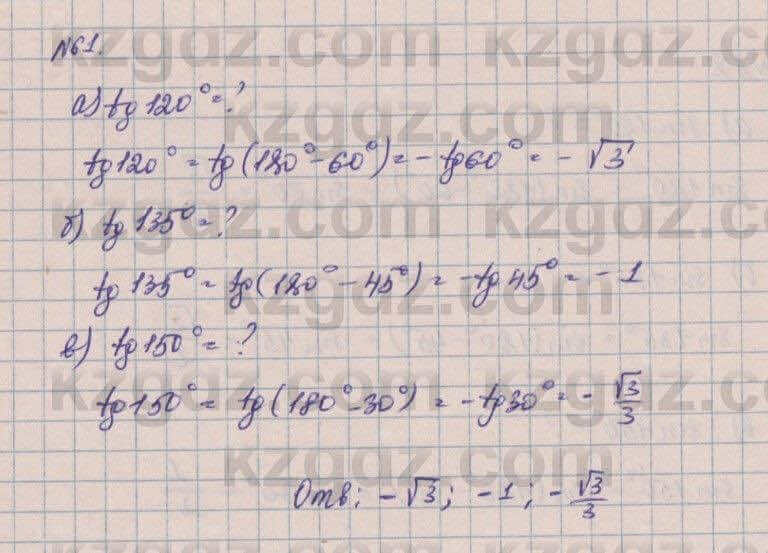 №61.
а) tg 120° = ?
tg 120° = tg (180° - 60°) = - tg 60° = - √3
б) tg 135° = ?
tg 135° = tg (180° - 45°) = - tg 45° = - 1
в) tg 150° = ?
tg 150° = tg (180° - 30°) = - tg 30° = - √3/3
Отв: - √3; - 1; - √3/3
kzgdz.com